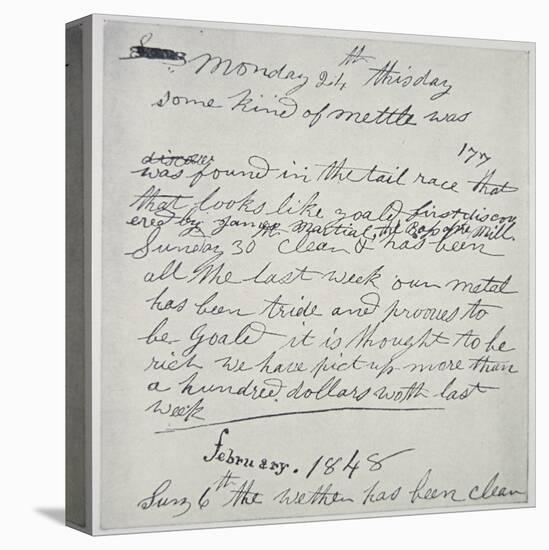 Monday 24th this day
some kind of mettle was
177
discover
was found in the tail race that
that looks like goald first discov
ered by James Martial, the Boss of the Mill.
Sunday 30 clean & has been
all the last week our metal
has been tride and prooves to
be goald it is thought to be
rich we have pict up more than
a hundred dollars woth last
week
February. 1848
Sun 6th the wether has been clean